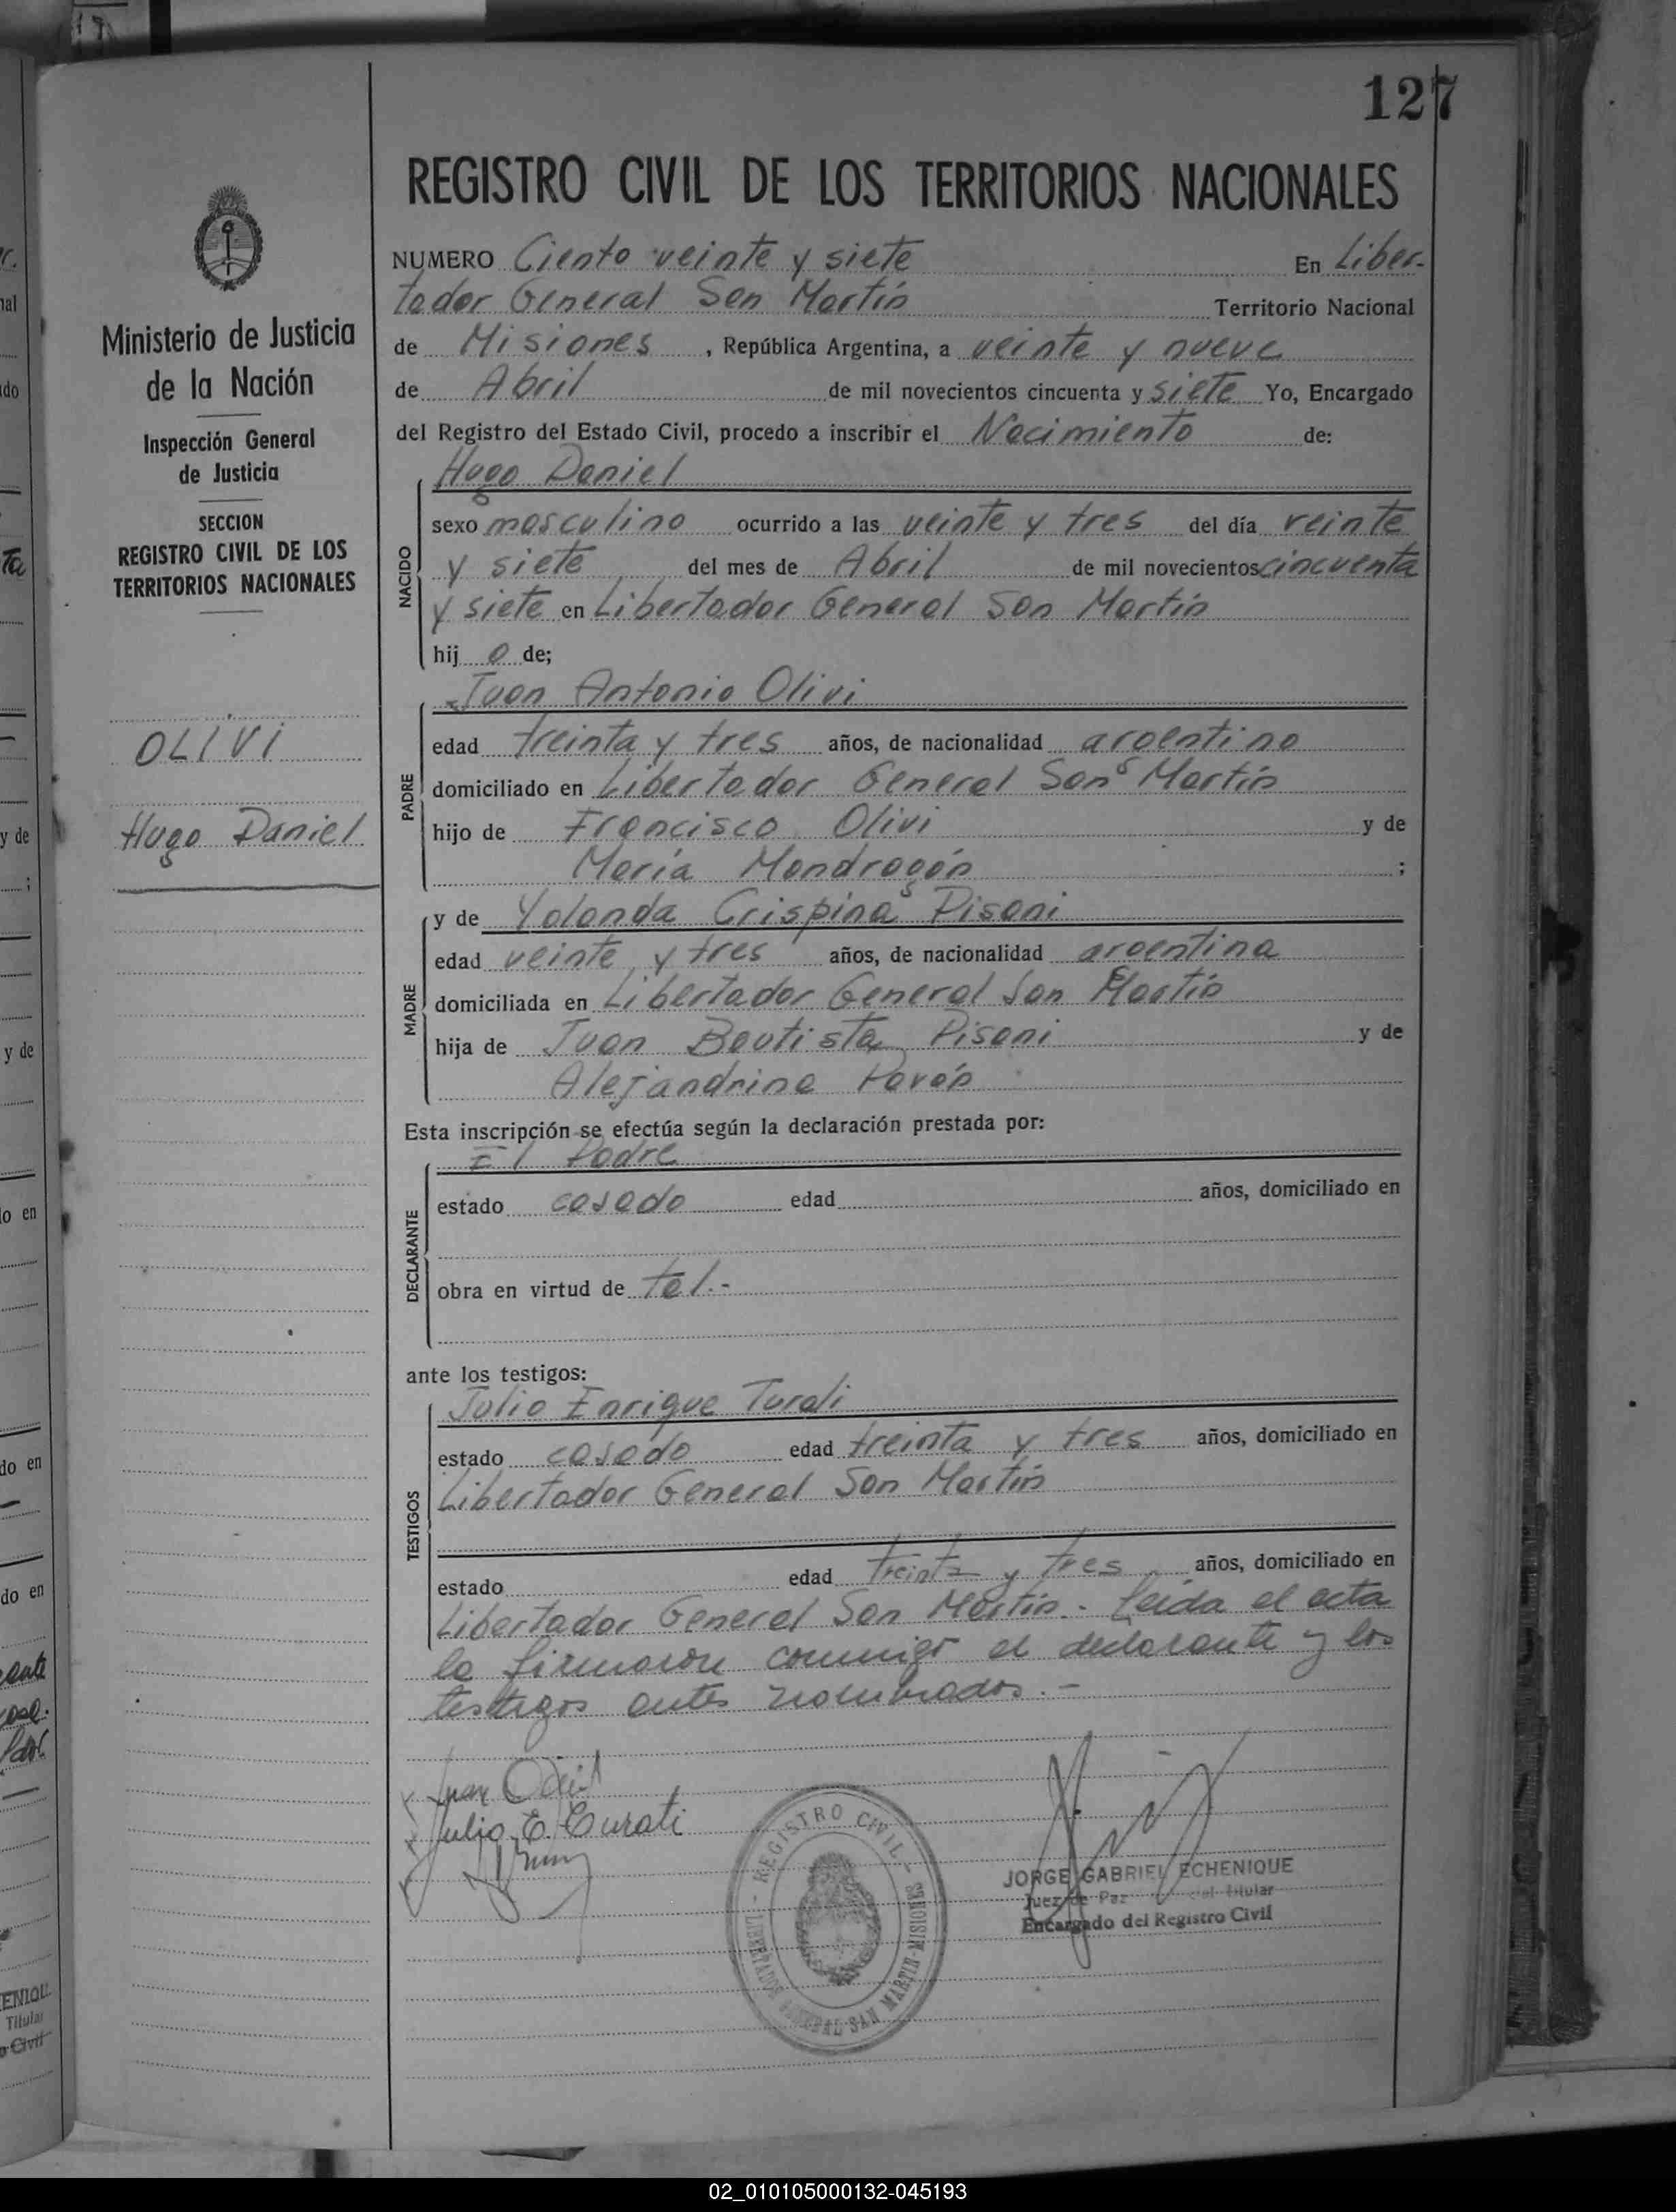 127
REGISTRO CIVIL DE LOS TERRITORIOS NACIONALES
Ministerio de Justicia
de la Nación
Inspección General
de Justicia
SECCION
REGISTRO CIVIL DE LOS
TERRITORIOS NACIONALES
OLIVI
Hugo Daniel
NUMERO Ciento veinte y siete En Liber-
tador General San Martín Territorio Nacional
de Misiones, República Argentina, a veinte y nueve
de Abril de mil novecientos cincuenta y siete Yo, Encargado
del Registro del Estado Civil, procedo a inscribir el Nacimiento de:
Hugo Daniel
NACIDO
sexo masculino ocurrido a las veinte y tres del día veinte
y siete del mes de Abril de mil novecientos cincuenta
y siete en Libertador General San Martín
hij o de;
Juan Antonio Olivi
PADRE
edad treinta y tres años, de nacionalidad argentino
domiciliado en Libertador General San Martín
hijo de Francisco Olivi y de
María Mondragón ;
y de Yolanda Crispina Pisani
MADRE
edad veinte y tres años, de nacionalidad argentina
domiciliada en Libertador General San Martín
hija de Juan Bautista Pisani y de
Alejandrina Pavón
Esta inscripción se efectúa según la declaración prestada por:
El Padre
DECLARANTE
estado casado edad años, domiciliado en
obra en virtud de tal.-
ante los testigos:
Julio Enrique Turati
TESTIGOS
estado casado edad treinta y tres años, domiciliado en
Libertador General San Martín
estado edad treinta y tres años, domiciliado en
Libertador General San Martín.- Leída el acta
la firmaron conmigo el declarante y los
testigos antes nombrados.-
Juan Olivi
Julio E. Turati
REGISTRO CIVIL
LIBERTADOR GENERAL SAN MARTIN - MISIONES
JORGE GABRIEL ECHENIQUE
Juez de Paz del Titular
Encargado del Registro Civil
02_010105000132-045193